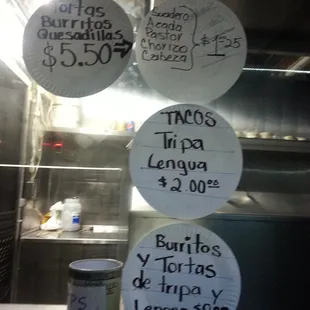 Tortas
Burritos
Quesadillas
$5.50
Suadero
Asada
Pastor
Chorizo
Cabeza
$1.25
TACOS
Tripa
Lengua
$2.00
Burritos
y Tortas
de tripa y
Lengua